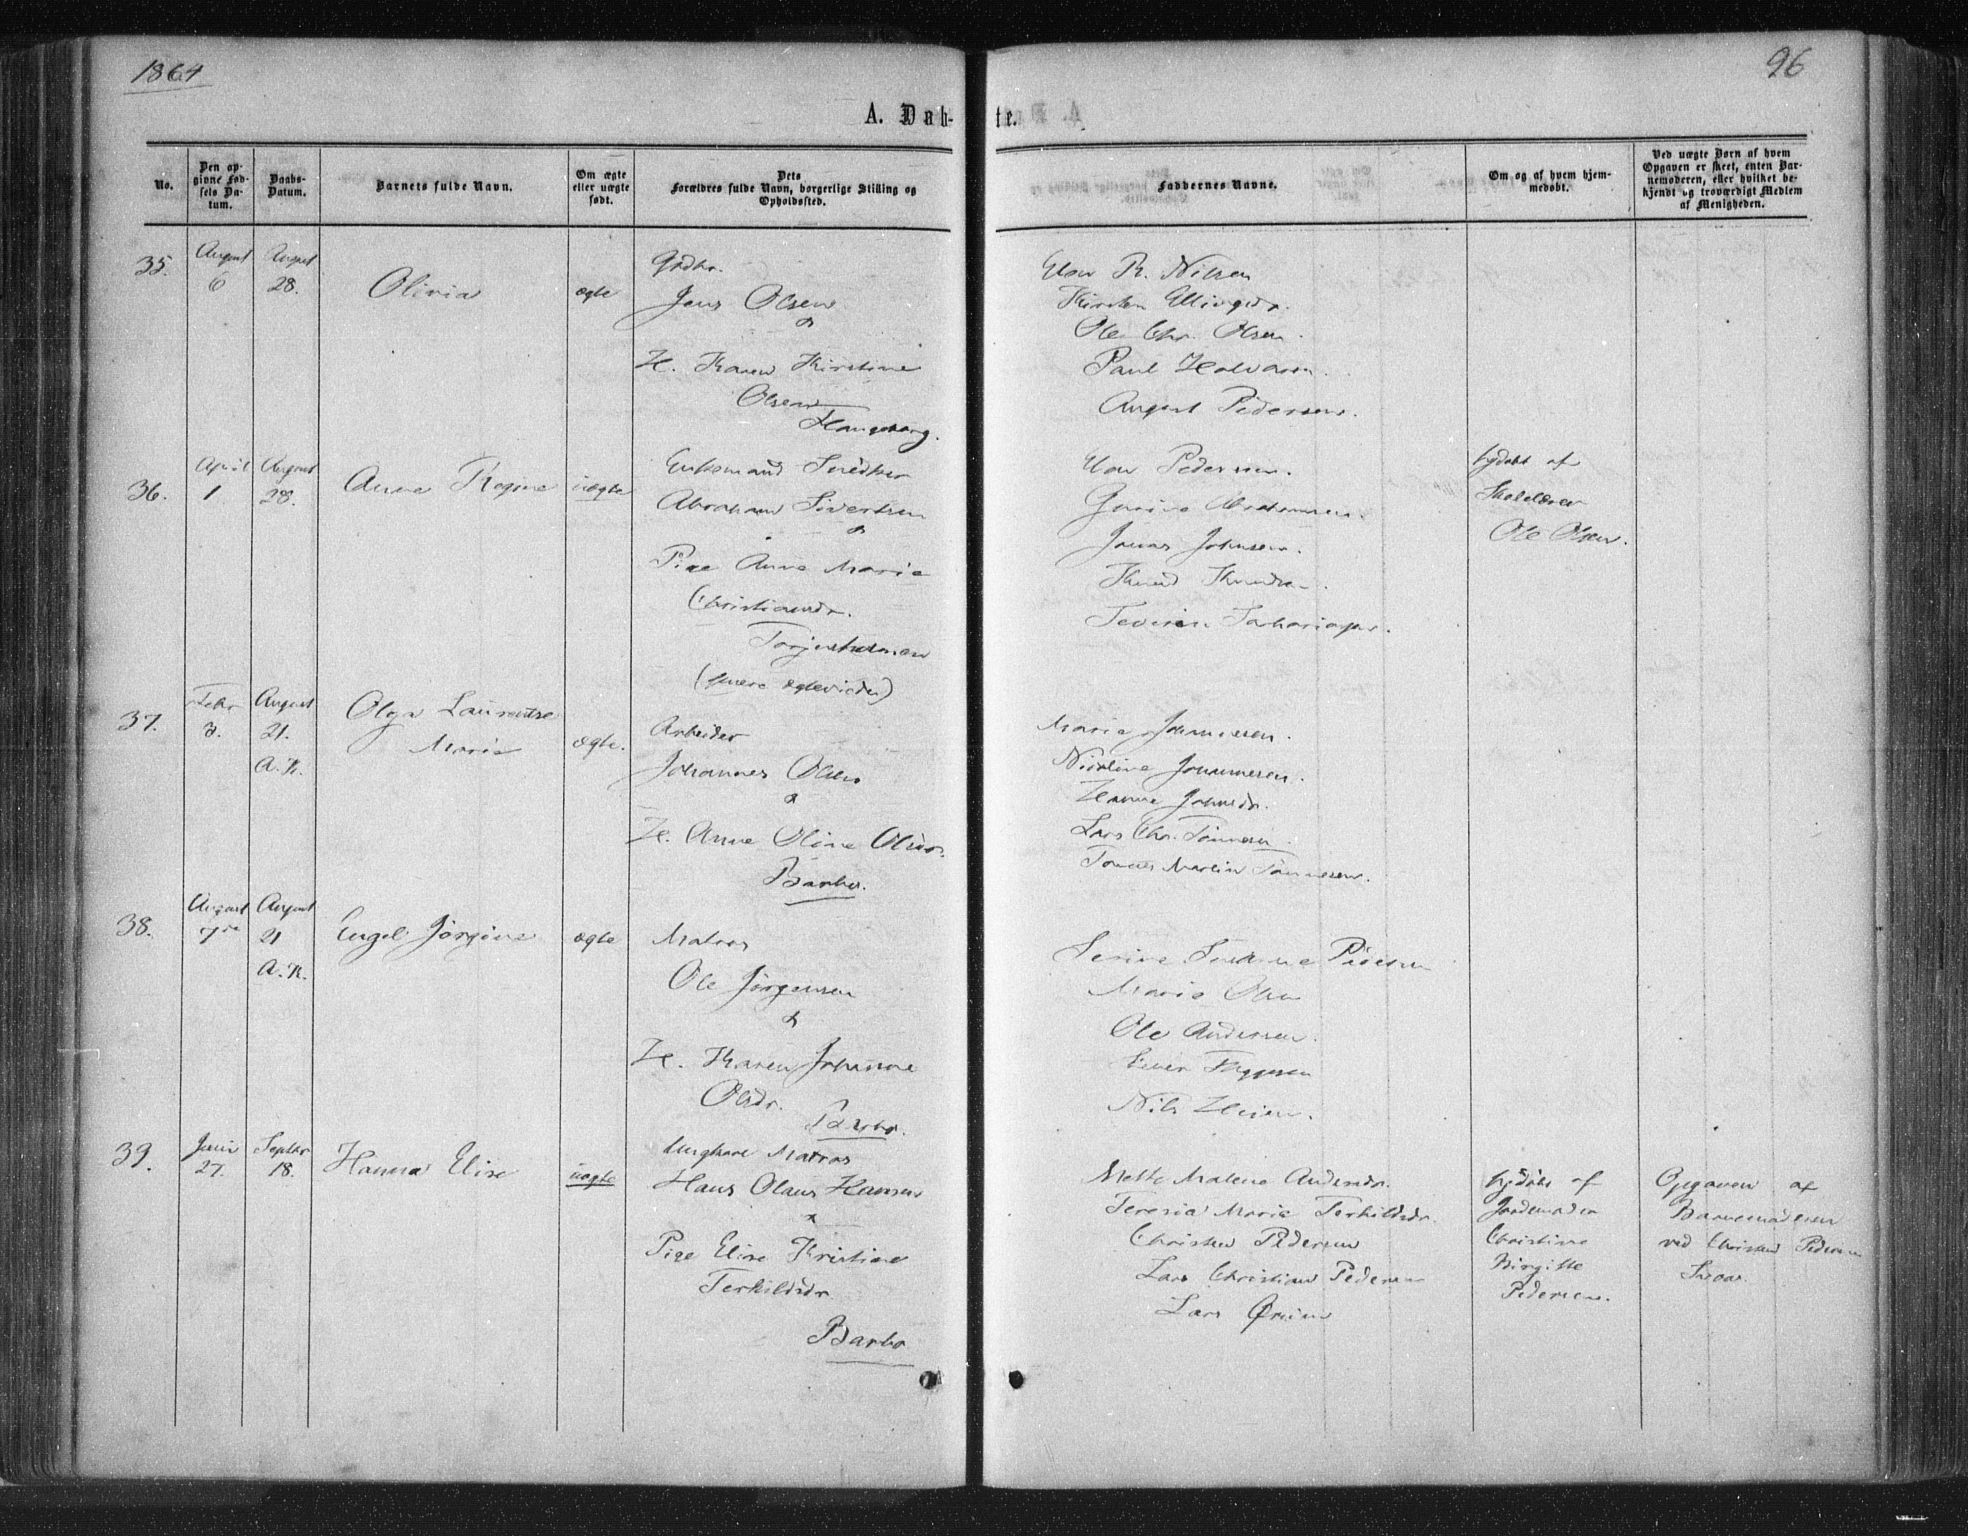 1864
96
A. Døbte.
No.
Den opgivne Fødsels Datum.
Daabs-Datum.
Barnets fulde Navn.
Om ægte eller uægte født.
Dets Forældres fulde Navn, borgerlige Stilling og Opholdssted.
Faddernes Navne.
Om og af hvem hjemmedøbt.
Ved uægte Børn af hvem Opgaven er skeet, enten Barnemoderen, eller hvilket bekjendt og troværdigt Medlem af Menigheden.
35.
August
6
August
28.
Olivia
ægte
Jens Olsen
H. Karen Kirstine
Olsen
Nilsen
Kirsten
Ole Chr. Olsen.
Paul
August Pedersen.
36.
April
1
August
28.
Anne Regine
uægte
Enkemand Snedker
Abraham Sivertsen
Pige Anne Marie
Christiansdr.
Pedersen.
Jonas Johnsen.
Knud Knudsen.
hjdøbt af
Skolelærer
Ole Olsen.
37.
Febr
3.
August
21.
A. K.
Olga
Marie
ægte.
Arbeider
Johannes Olsen
&
H. Anne Oline Olsdr.
Barbo.
Marie Johannesen.
Nicoline Johannesen.
Hanne Johnsdr.
Lars Chr. Tønnesen.
Martin Tønnesen.
38.
August
7de
August
21
A. K.
Engel Jørgine
ægte
Matros
Ole Jørgensen
&
H. Karen Johanne
Olsdr.
Barbo.
Marie Olsen
Ole Andersen.
Nils
39.
Juni
27.
Septbr
18.
Hanna Elise
uægte
Ungkarl Matros
Hans Olaus Hansen
Pige Elise Kristine
Terkildsdr.
Barbo
Mette Malene Andersdr.
Teresia Marie Terkildsdr.
Christen Pedersen
Lars Christian Pedersen
Lars
hjdøbt af
Jordemoder
Christine
Birgitte
Pedersen.
Opgaven af
Barnemoderen
ved Christen Pedersen